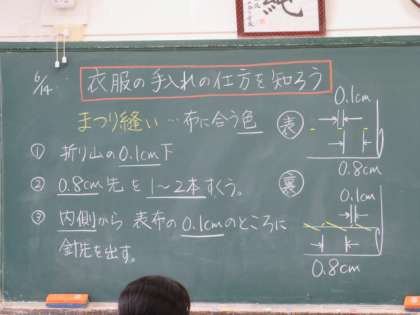 6/14
衣服の手入れの仕方を知ろう
まつり縫い…布に合う色
① 折り山の0.1cm下
② 0.8cm先を1〜2本すくう。
③ 内側から表布の0.1cmのところに
針先を出す。
表
0.1cm
0.8cm
裏
0.1cm
0.8cm